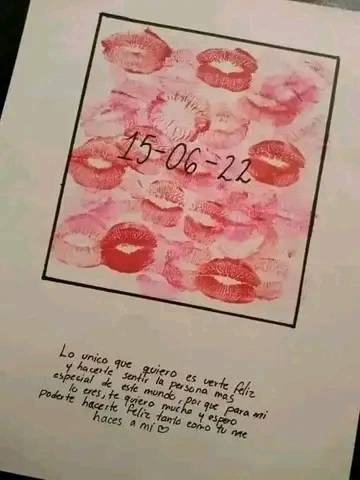 15-06-22
Lo unico que quiero es verte feliz
y hacerte sentir la persona mas
especial de este mundo, por que para mi
lo eres, te quiero mucho y espero
poderte hacerte feliz tanto como tu me
haces a mi ♡